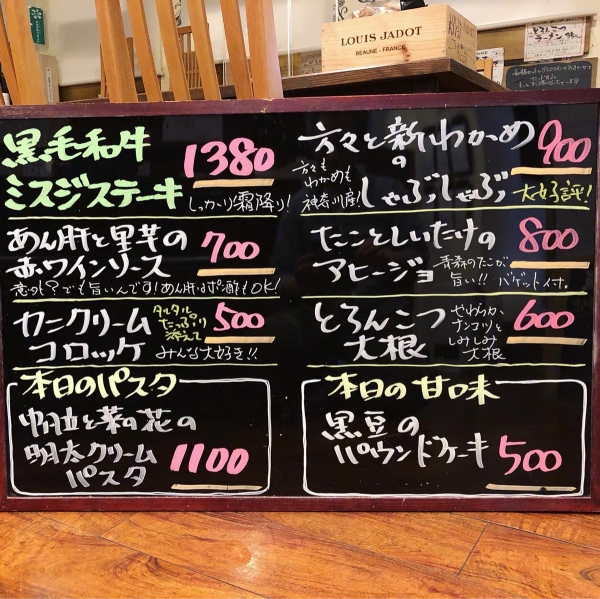 LOUIS JADOT
BEAUNE - FRANCE
とろんこつ
ラーメン
黒毛和牛
ミスジステーキ
1380
しっかり霜降り!
あん肝と里芋の
赤ワインソース
700
意外?でも旨いんです!あん肝はポン酢もOK!
カニクリーム
コロッケ
タルタル
たっぷり
添えて
500
みんな大好き!!
本日のパスタ
帆立と菜の花の
明太クリーム
パスタ
1100
方々と新わかめ
の
しゃぶしゃぶ
900
方々も
わかめも
神奈川産!
大好評!
たことしいたけの
アヒージョ
800
青森のたこが
旨い!! バゲット付。
とろんこつ
大根
やわらか
ナンコツと
しみしみ
大根
600
本日の甘味
黒豆の
パウンドケーキ
500